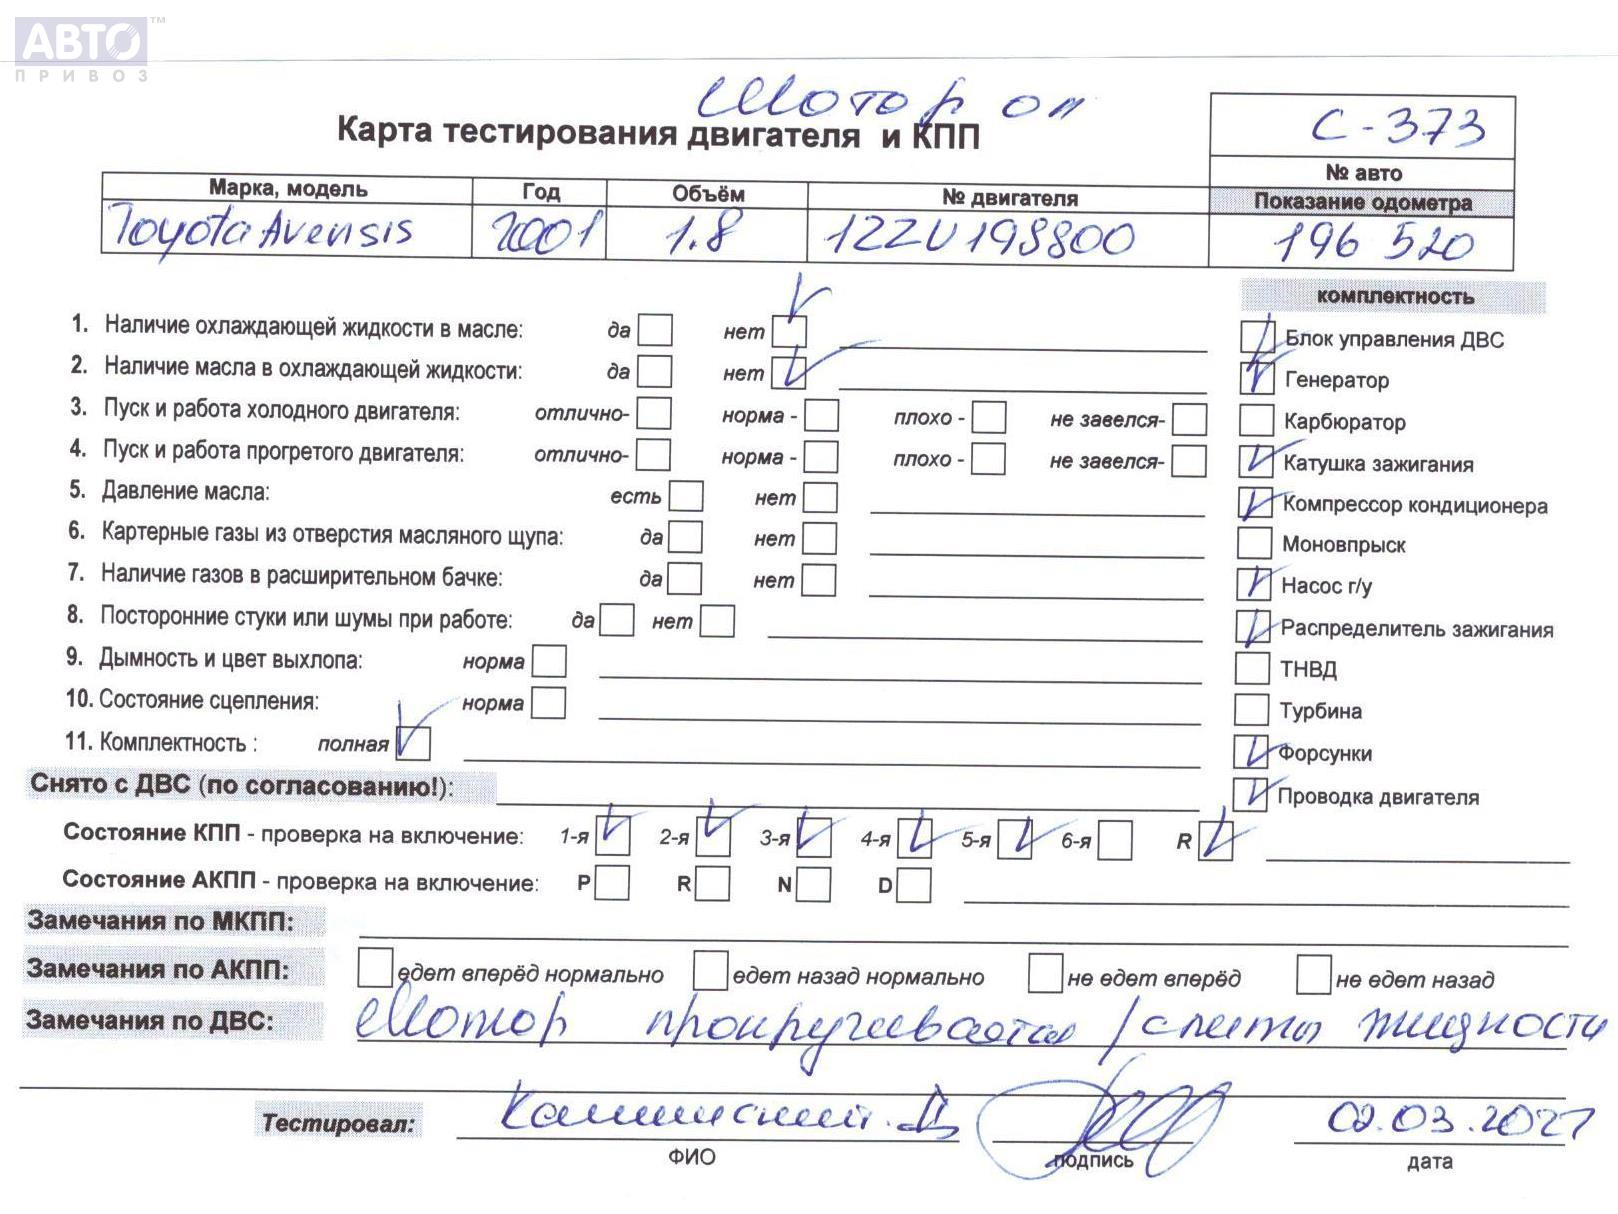 АВТО™
ПРИВОЗ
Мотор ок
Карта тестирования двигателя и КПП
С-373
№ авто
Марка, модель Год Объём № двигателя Показание одометра
Toyota Avensis 2001 1.8 1ZZU198800 196 520
комплектность
1. Наличие охлаждающей жидкости в масле: да нет
Блок управления ДВС
2. Наличие масла в охлаждающей жидкости: да нет
Генератор
3. Пуск и работа холодного двигателя: отлично- норма - плохо - не завелся-
Карбюратор
4. Пуск и работа прогретого двигателя: отлично- норма - плохо - не завелся-
Катушка зажигания
5. Давление масла: есть нет
Компрессор кондиционера
6. Картерные газы из отверстия масляного щупа: да нет
Моновпрыск
7. Наличие газов в расширительном бачке: да нет
Насос г/у
8. Посторонние стуки или шумы при работе: да нет
Распределитель зажигания
9. Дымность и цвет выхлопа: норма
ТНВД
10. Состояние сцепления: норма
Турбина
11. Комплектность : полная
Форсунки
Снято с ДВС (по согласованию!):
Проводка двигателя
Состояние КПП - проверка на включение: 1-я 2-я 3-я 4-я 5-я 6-я R
Состояние АКПП - проверка на включение: P R N D
Замечания по МКПП:
Замечания по АКПП: едет вперёд нормально едет назад нормально не едет вперёд не едет назад
Замечания по ДВС: Мотор прокручивается / слиты жидкости
Тестировал: Калинский Д 02.03.2021
ФИО подпись дата